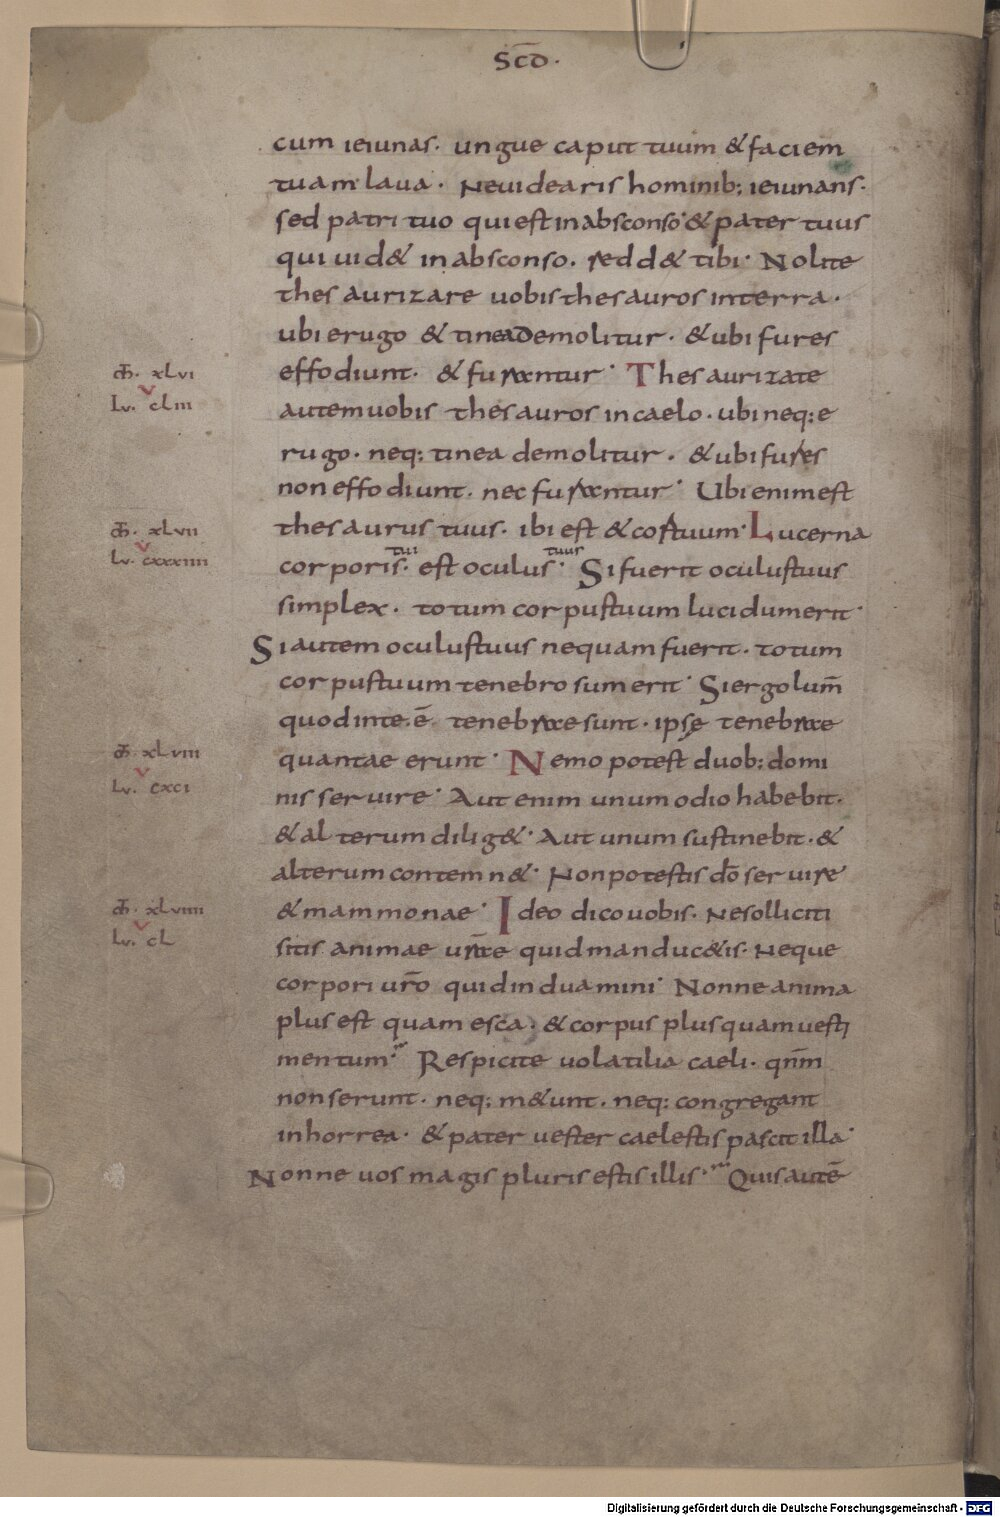 Scd̅·
cum ieiunas· ungue caput tuum & faciem
tuam laua· Neuidearis hominib; ieiunans·
sed patri tuo qui est in absconso· & pater tuus
qui uid& in absconso. redd& tibi· Nolite
thesaurizare uobis thesauros in terra·
ubi erugo & tinea demolitur· & ubi fures
effodiunt· & furantur· Thesaurizate
autem uobis thesauros in caelo· ubi neq; e
rugo· neq; tinea demolitur· & ubi fures
non effodiunt· nec furantur· Ubi enim est
thesaurus tuus· ibi est & cor tuum· Lucerna
corporis tui· est oculus tuus· Si fuerit oculus tuus
simplex· totum corpus tuum lucidum erit·
Si autem oculus tuus nequam fuerit· totum
corpus tuum tenebrosum erit· Si ergo lum̅
quod in te· e̅ tenebrae sunt· ipsę tenebrae
quantae erunt· Nemo potest duob; domi
nis seruire· Aut enim unum odio habebit·
& alterum dilig&· Aut unum sustinebit· &
alterum contemn&· Non potestis do̅ seruire
& mammonae· Ideo dico uobis· Ne solliciti
sitis animae ur̅ae quid manduc&is· Neque
corpori ur̅o quid induamini· Nonne anima
plus est quam esca· & corpus plus quam uesti
mentum· Respicite uolatilia caeli· qn̅m
non serunt· neq; m&unt· neq; congregant
in horrea· & pater uester caelestis pascit illa·
Nonne uos magis pluris estis illis· Quis aute̅
m̅t· xlvi
Lu· cliii
m̅t· xlvii
Lu· cxxxiiii
m̅t· xlviii
Lu· cxci
m̅t· xlviiii
Lu· cL
Digitalisierung gefördert durch die Deutsche Forschungsgemeinschaft - DFG